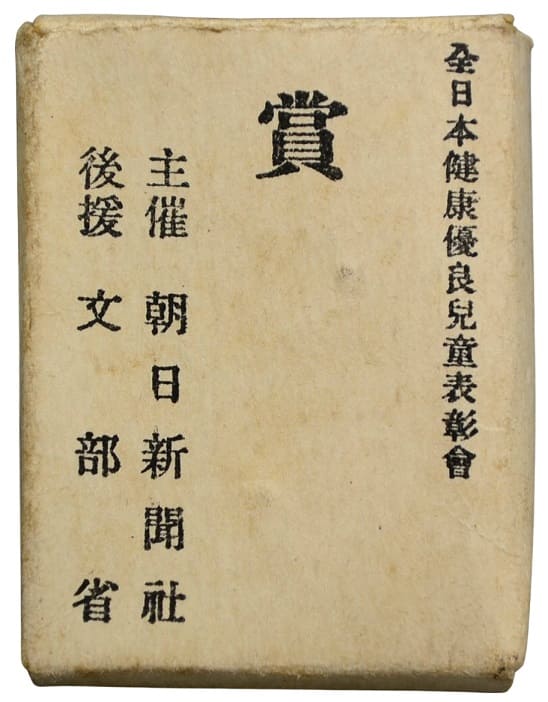 全日本健康優良兒童表彰會
賞
主催 朝日新聞社
後援 文部省